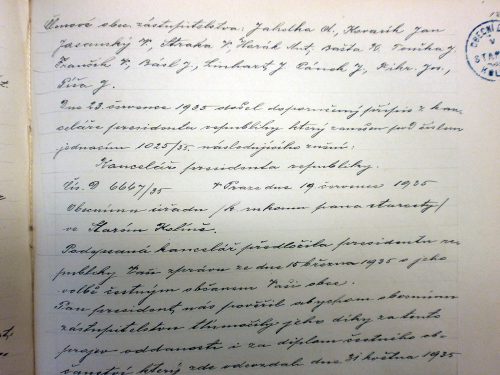 Členové obec. zastupitelstva: Jahelka A., Kovařík Jan
Jasanský V., Straka V. Horák Ant., Bašta K. Tonika J.
Franěk V., Bäsl J., Linhart J. Pánek J., Fikr. Jos.,
Píša J.
Dne 23. července 1935 došel doporučený přípis z kan-
celáře presidenta republiky který zanesen pod číslem
jednacím 1025/35. následujícího znění:
Kancelář presidenta republiky.
Čís. D 6667/35 V Praze dne 19 července 1935
Obecnímu úřadu /k rukoum pana starosty/
ve Starém Kolíně.
Podepsaná kancelář předložila presidentu re-
publiky Vaši zprávu ze dne 15 března 1935 o jeho
volbě čestným občanem Vaší obce.
Pan president nás pověřil abychom obecnímu
zastupitelstvu tlumočily jeho díky za tento
projev oddanosti i za diplom čestného ob-
čanství který zde odevzdali dne 31 května 1935
OBECNÍ
V
STAR
KOL